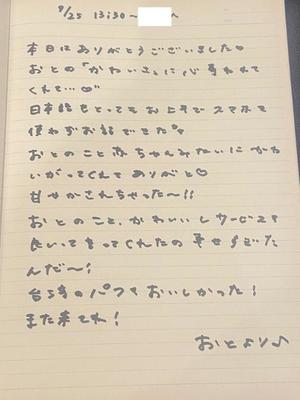 9/25 13:30〜 へ
本日はありがとうございました♡
おとの「かわいさ」に心奪われて
くれて…♡"
日本語もとってもお上手でスマホで
使わずお話できた!!
おとのこと赤ちゃんみたいにかわ
いがってくれてありがと♡
甘やかされちゃった〜!!
おとのこと、かわいいしサービスま
良いって言ってくれたの幸せすぎた
んだ〜!
台湾のパフェおいしかった!
また来てね!
おとより♪